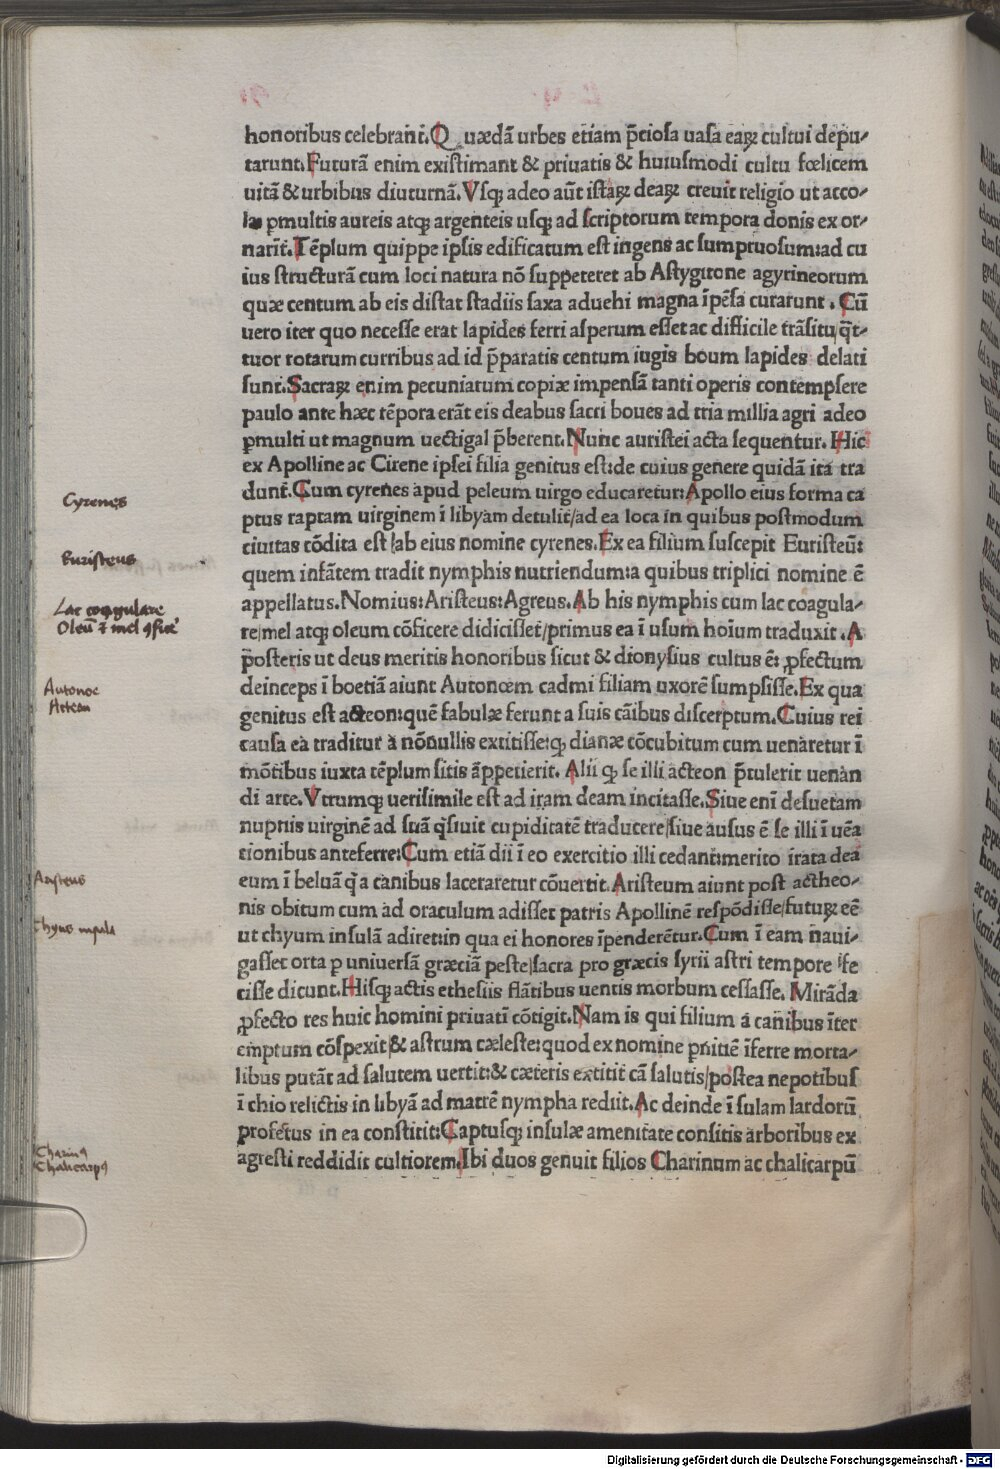 honoribus celebrant̄. Q uædā urbes etiam p̄ciosa uasa eaꝝ cultui depu-
tarunt. Futurā enim existimant & priuatis & huiusmodi cultu fœlicem
uitā & urbibus diuturnā. Vsqꝫ adeo aūt istaꝝ deaꝝ creuit religio ut acco-
læ ꝑmultis aureis atqꝫ argenteis usqꝫ ad scriptorum tempora donis ex or-
narīt. Tēplum quippe ipsis edificatum est ingens ac sumptuosum: ad cu
ius structurā cum loci natura nō suppeteret ab Astygitone agyrineorum
quæ centum ab eis distat stadiis saxa aduehi magna īpēsa curarunt. Cū
uero iter quo necesse erat lapides ferri asperum esset ac difficile trāsitu q̄t-
tuor rotarum curribus ad id p̄paratis centum iugis boum lapides delati
sunt. Sacraꝝ enim pecuniarum copiæ impensā tanti operis contempsere
paulo ante hæc tēpora erāt eis deabus sacri boues ad tria millia agri adeo
ꝑmulti ut magnum uectigal p̄berent. Nunc auristei acta sequentur. Hic
ex Apolline ac Cirene ipsei filia genitus est: de cuius genere quidā ita tra
dunt̄. Cum cyrenes apud peleum uirgo educaretur: Apollo eius forma ca
ptus raptam uirginem ī libyam detulit/ad ea loca in quibus postmodum
ciuitas cōdita est/ab eius nomine cyrenes. Ex ea filium suscepit Euristeū:
quem infātem tradit nymphis nutriendum: a quibus triplici nomine ē
appellatus. Nomius: Aristeus: Agreus. Ab his nymphis cum lac coagula-
re/mel atqꝫ oleum cōficere didicisset/primus ea ī usum hoīum traduxit. A
posteris ut deus meritis honoribus sicut & dionysius cultus ē: ꝓfectum
deinceps ī boetiā aiunt Autonœm cadmi filiam uxorē sumpsisse. Ex qua
genitus est acteon: quē fabulæ ferunt a suis cāibus discerptum. Cuius rei
causa ea traditur a nōnullis extitisse: qꝫ dianæ cōcubitum cum uenaretur ī
mōtibus iuxta tēplum sitis āppetierit. Alii qꝫ se illi acteon p̄tulerit uenan
di arte. Vtrumqꝫ uerisimile est ad iram deam incitasse. Siue enī desuetam
nuptiis uirginē ad suā q̄siuit cupiditatē traducere/siue ausus ē se illi ī uēa
tionibus anteferre: Cum etiā dii ī eo exercitio illi cedant: merito irata dea
eum ī beluā q̄ a canibus laceraretur cōuertit. Aristeum aiunt post actheo-
nis obitum cum ad oraculum adisset patris Apollinē respōdisse/futuꝝ eē
ut chyum insulā adiret: in qua ei honores īpenderētur. Cum ī eam naui-
gasset orta ꝑ uniuersā græciā peste/sacra pro græcis syrii astri tempore fe
cisse dicunt. Hisqꝫ actis ethesiis flātibus uentis morbum cessasse. Mirāda
ꝓfecto res huic homini priuatī cōtigit. Nam is qui filium a canibus īter
emptum cōspexit/& astrum cæleste: quod ex nomine ꝑnitiē īferre morta-
libus putāt ad salutem uertit: & cæteris extitit cā salutis/postea nepotibus
ī chio relictis in libyā ad matrē nympha rediit. Ac deinde ī sulam lardorū
profetus in ea constitit: Captusqꝫ insulæ amenitate consitis arboribus ex
agresti reddidit cultiorem. Ibi duos genuit filios Charinum ac chalicarpū
Cyrenes
Euristeus
Lac coagulare
Oleū & mel ꝯfice'
Autonoe
Acteon
Aristeus
Chyus insula
Charinꝰ
Chalicarpꝰ
Digitalisierung gefördert durch die Deutsche Forschungsgemeinschaft - DFG